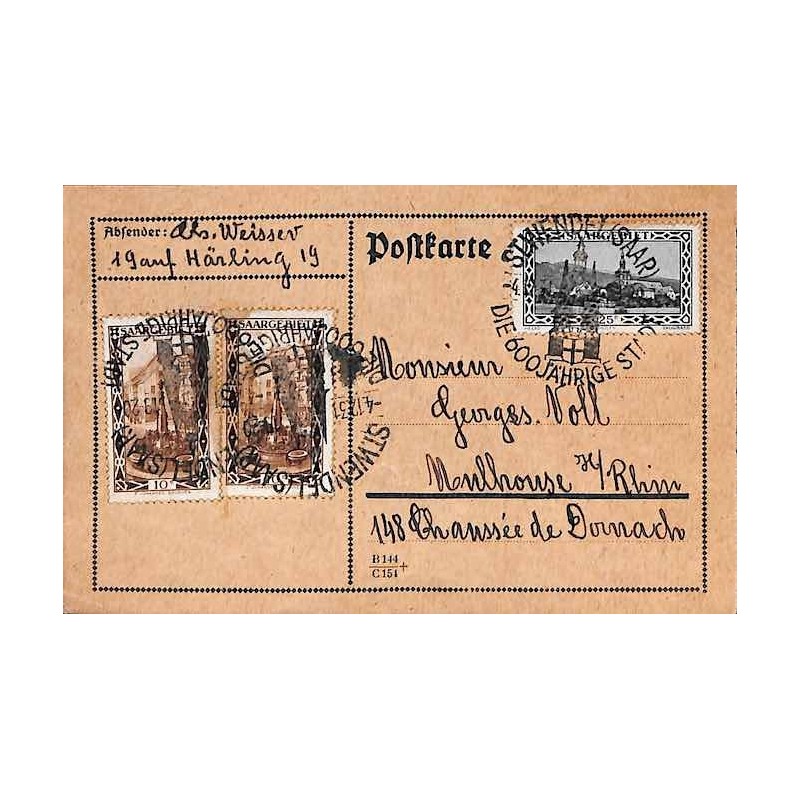 Absender: Als. Weisser
19 auf Härling 19
Postkarte
SAARGEBIET
25
ST. WENDEL (SAAR)
DIE 600 JÄHRIGE STADT
SAARGEBIET
10
SAARGEBIET
ST. WENDEL (SAAR)
-4.12.31
Monsieur
Georges Noll
Mulhouse H/Rhin
148 Chaussée de Dornach
B 144
C 154
+